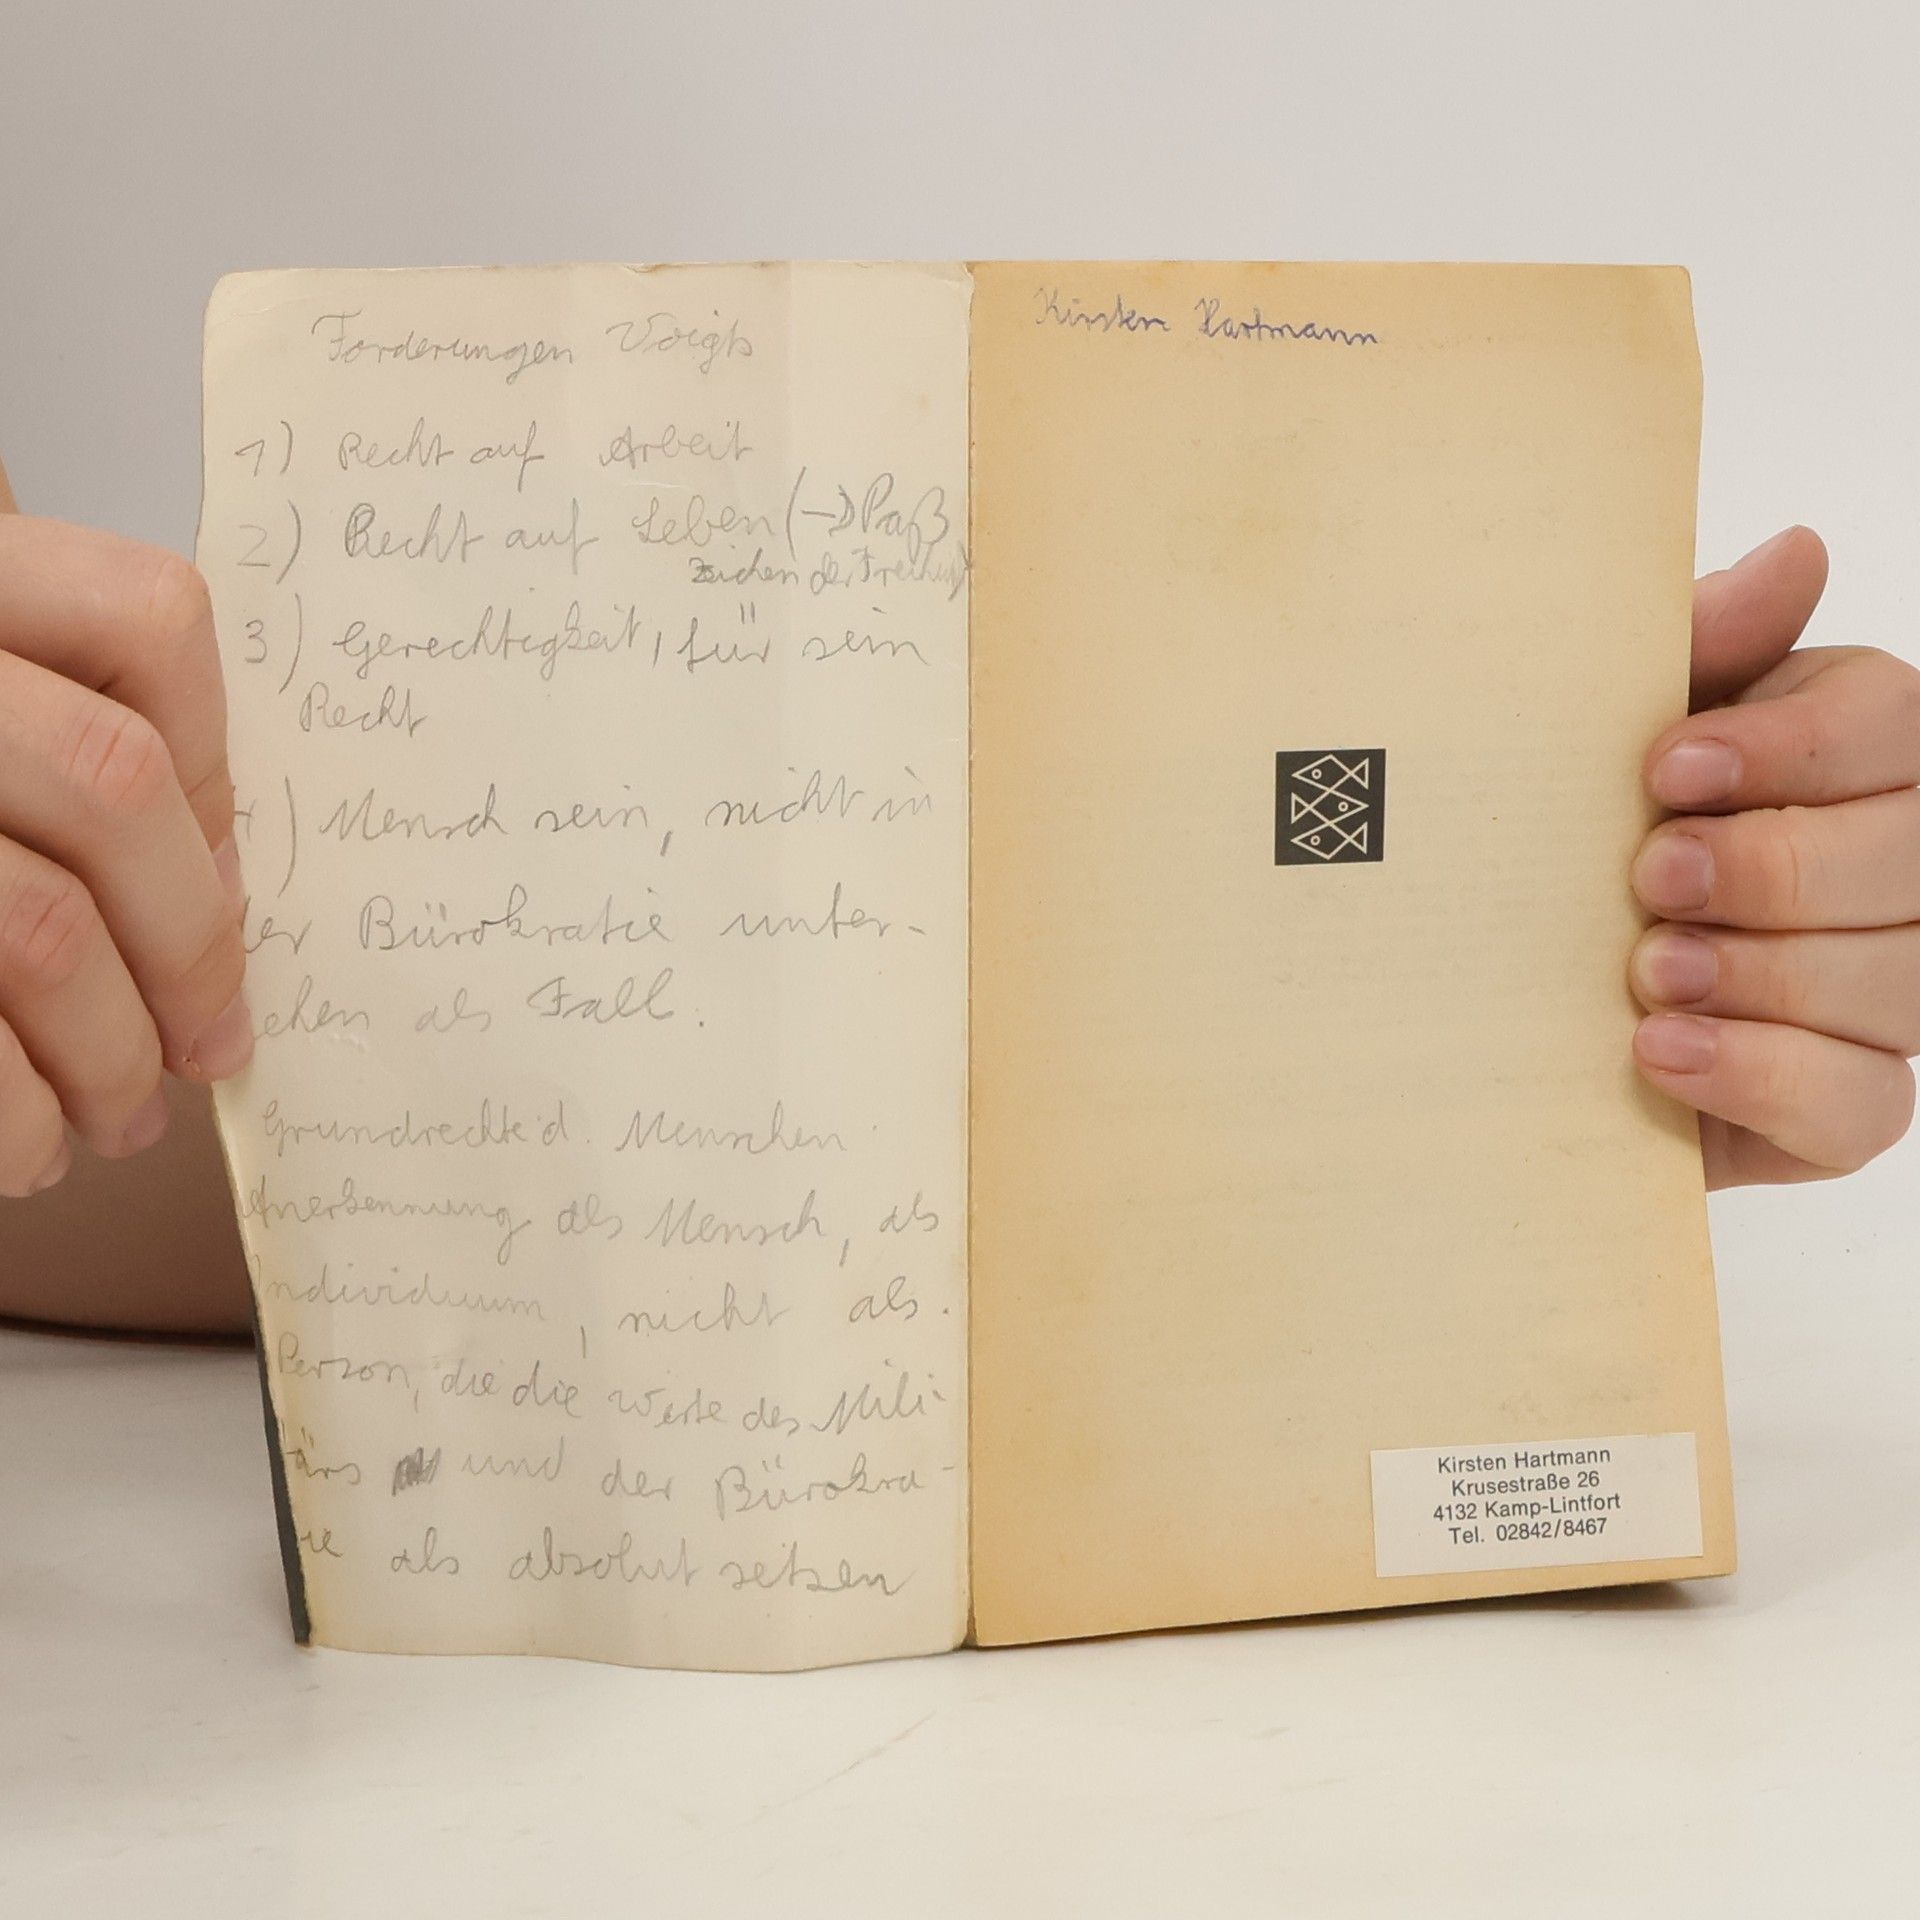 Forderungen Voigts
1) Recht auf Arbeit
2) Recht auf Leben (→ Paß
Zeichen der Freiheit)
3) Gerechtigkeit, für sein
Recht
) Mensch sein, nicht in
der Bürokratie unter-
gehen als Fall.
Grundrechte d. Menschen
Anerkennung als Mensch, als
Individuum, nicht als
Person, die die Werte des Mili-
tärs und der Bürokra-
tie als absolut setzen
Kirsten Hartmann
Kirsten Hartmann
Krusestraße 26
4132 Kamp-Lintfort
Tel. 02842/8467